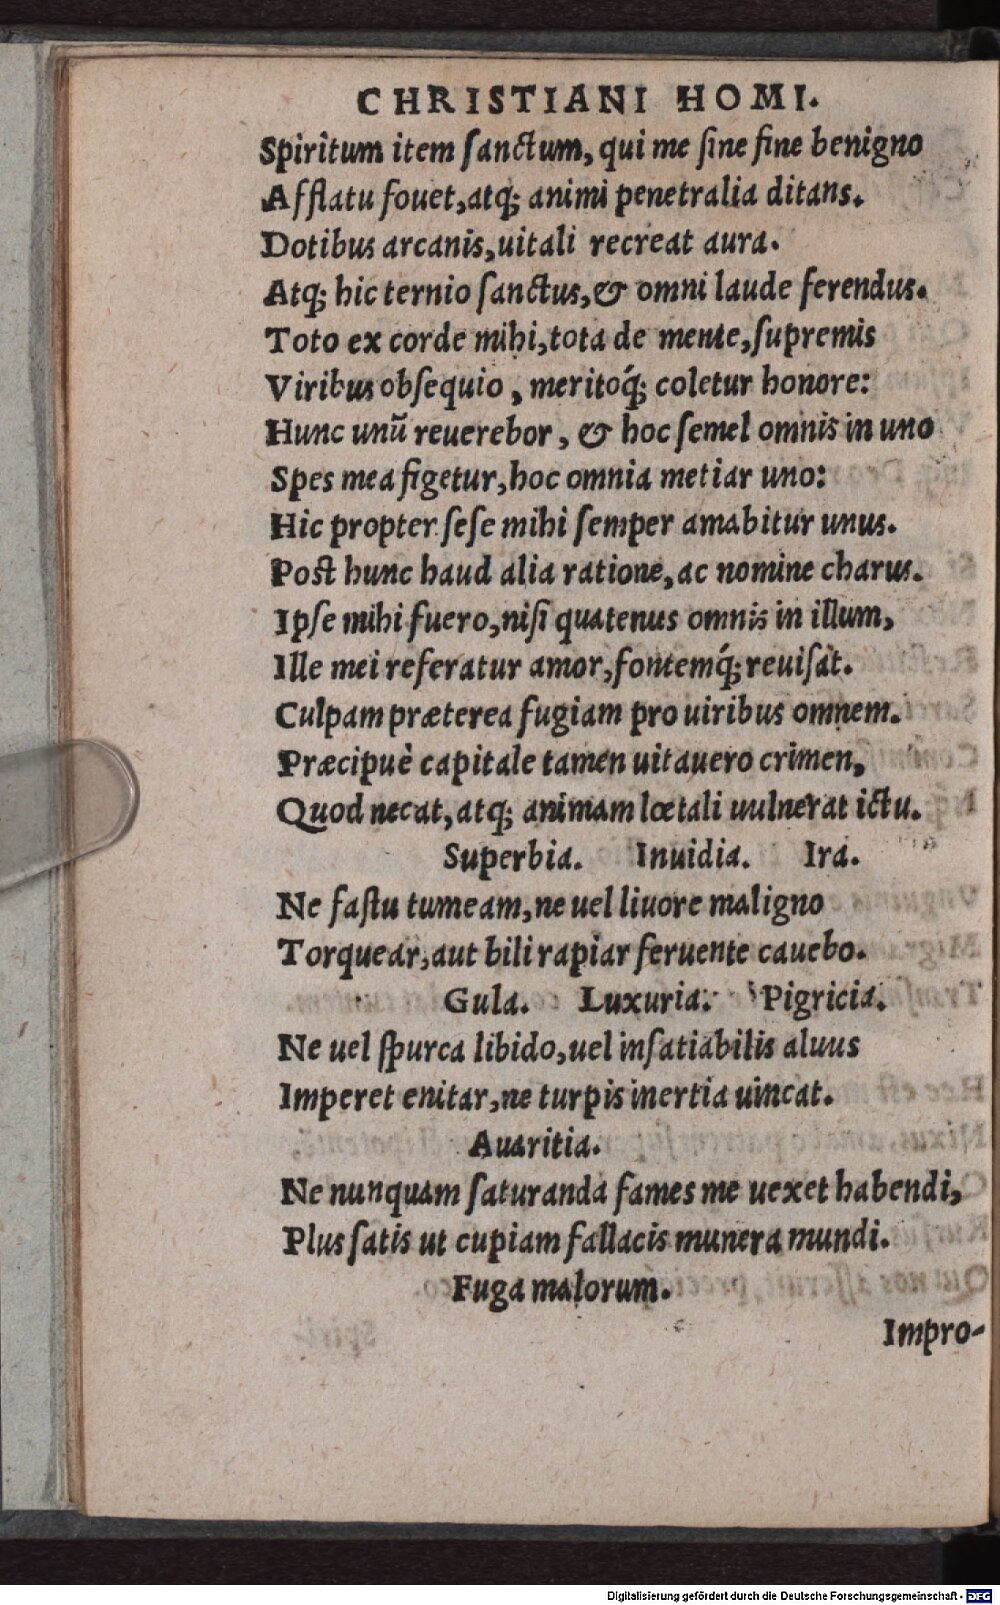 CHRISTIANI HOMI.
Spiritum item ſanctum, qui me ſine fine benigno
Afflatu fouet, atq; animi penetralia ditans.
Dotibus arcanis, uitali recreat aura.
Atq; hic ternio ſanctus, & omni laude ferendus.
Toto ex corde mihi, tota de mente, ſupremis
Viribus obſequio, meritoq́; coletur honore:
Hunc unū reuerebor, & hoc ſemel omnis in uno
Spes mea figetur, hoc omnia metiar uno:
Hic propter ſeſe mihi ſemper amabitur unus.
Poſt hunc haud alia ratione, ac nomine charus.
Ipſe mihi fuero, niſi quatenus omnis in illum,
Ille mei referatur amor, fontemq́; reuiſat.
Culpam præterea fugiam pro uiribus omnem.
Præcipuè capitale tamen uitauero crimen,
Quod necat, atq; animam lœtali uulnerat ictu.
Superbia. Inuidia. Ira.
Ne faſtu tumeam, ne uel liuore maligno
Torquear, aut bili rapiar feruente cauebo.
Gula. Luxuria. Pigricia.
Ne uel ſpurca libido, uel inſatiabilis aluus
Imperet enitar, ne turpis inertia uincat.
Auaritia.
Ne nunquam ſaturanda fames me uexet habendi,
Plus ſatis ut cupiam fallacis munera mundi.
Fuga malorum.
Impro-
Digitalisierung gefördert durch die Deutsche Forschungsgemeinschaft - DFG